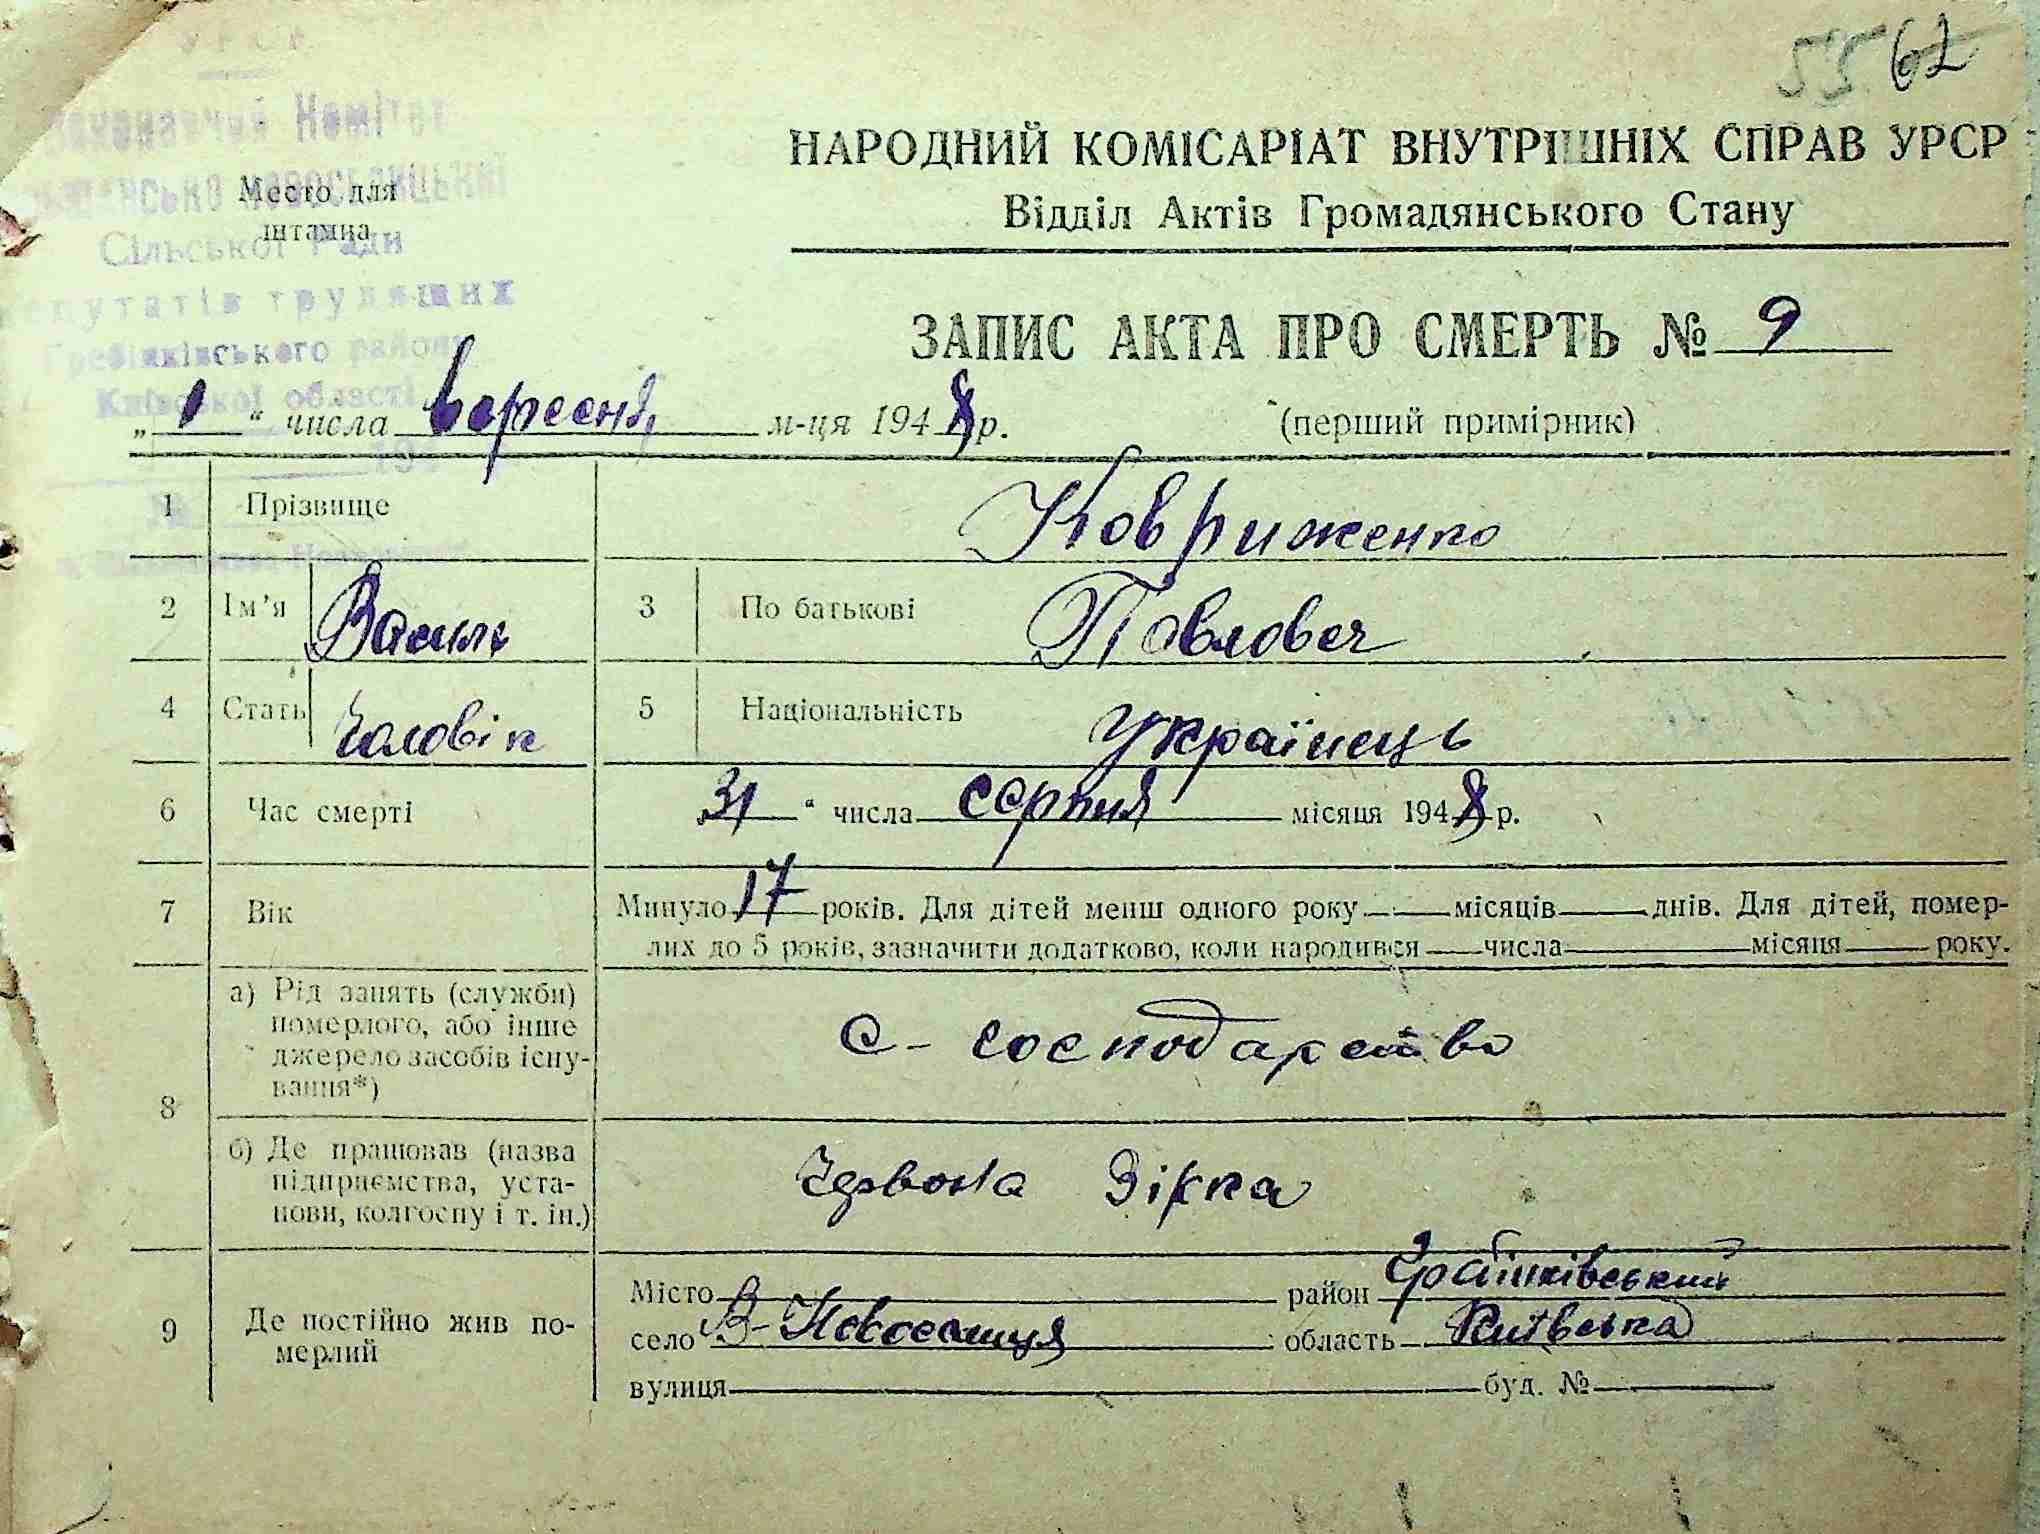 55 62
УРСР
Виконавчий Комітет
Сільської Ради
депутатів трудящих
Гребінківського району
Київської області
Место для
штампа
НАРОДНИЙ КОМІСАРІАТ ВНУТРІШНІХ СПРАВ УРСР
Відділ Актів Громадянського Стану
ЗАПИС АКТА ПРО СМЕРТЬ № 9
„ 1 “ числа вересня м-ця 1948 р. (перший примірник)
1 Прізвище Ковриженко
2 Ім’я Василь 3 По батькові Павлович
4 Стать Чоловік 5 Національність Українець
6 Час смерті 31 “ числа серпня місяця 1948 р.
7 Вік Минуло 17 років. Для дітей менш одного року — місяців — днів. Для дітей, помер-
лих до 5 років, зазначити додатково, коли народився — числа — місяця — року.
8 а) Рід занять (служби)
померлого, або інше
джерело засобів існу-
вання*)
С- господарство
б) Де працював (назва
підприємства, уста-
нови, колгоспу і т. ін.)
Червона Зірка
9 Де постійно жив по-
мерлий
Місто район
село В-Новоселиця область Київська
вулиця буд. №